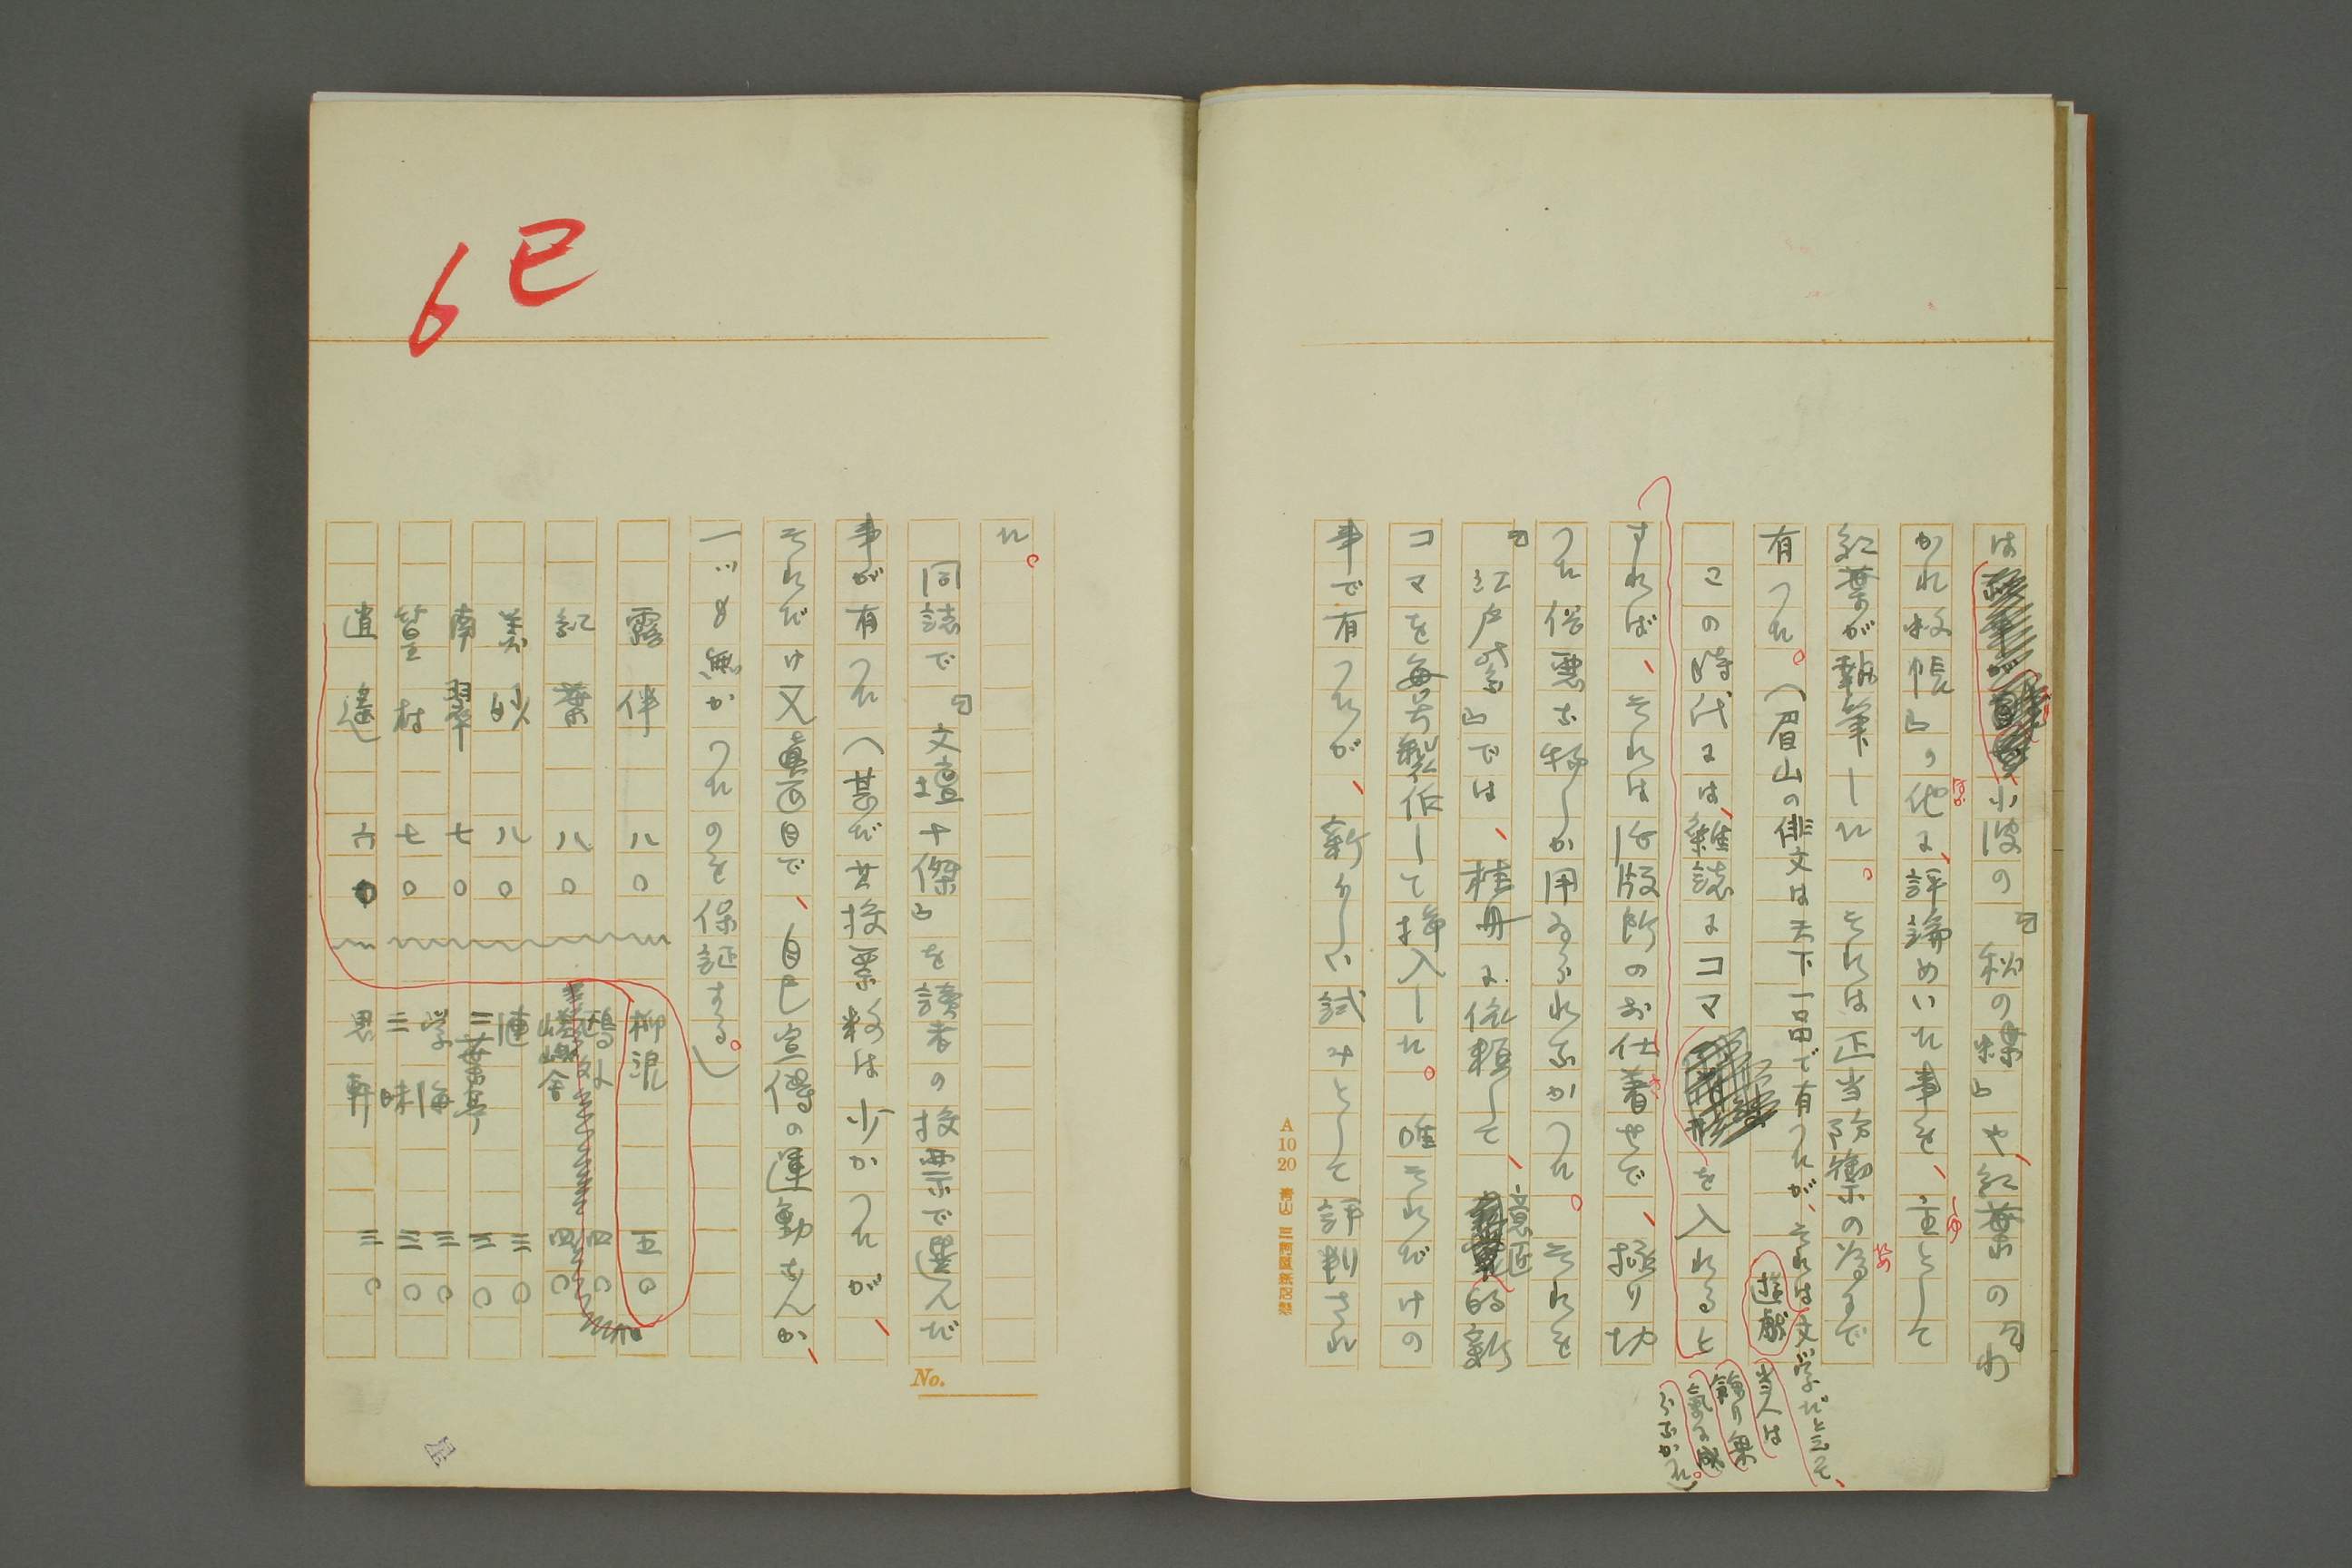 は小波の『秋の蝶』や、紅葉の『わ
かれ蚊帳』の他に、評論めいた事を、主として
紅葉が執筆した。それは正当防禦の為まで
有つた。(眉山の俳文は天下一品で有つたが、それは文学だと云へ、
遊戯
当人は
余り乗
気に成
らなかつた。)
この時代には、雑誌にコマを入れると
すれば、それは活版所のお仕着せで、極り切
つた俗悪な物しか用ゐられなかつた。それを
『江戸紫』では、桂舟に依頼して、意匠的新
コマを毎号製作して挿入した。唯それだけの
事で有つたが、新らしい試みとして評判され
A 10 20
た。
同誌で『文壇十傑』を読者の投票で選んだ
事が有つた(甚だ其投票数は少かつたが、
それだけ又真面目で、自己宣傳の運動なんか、
一ツも無かつたのを保証する。)
露伴 八〇 柳浪 五〇
紅葉 八〇 鴎外 四〇
嵯峨舎 四〇
美妙 八〇 漣 三〇
南翠 七〇 二葉亭 三〇
学海 三〇
篁村 七〇 三昧 三〇
逍遥 六〇 思軒 三〇
6 巳
No.